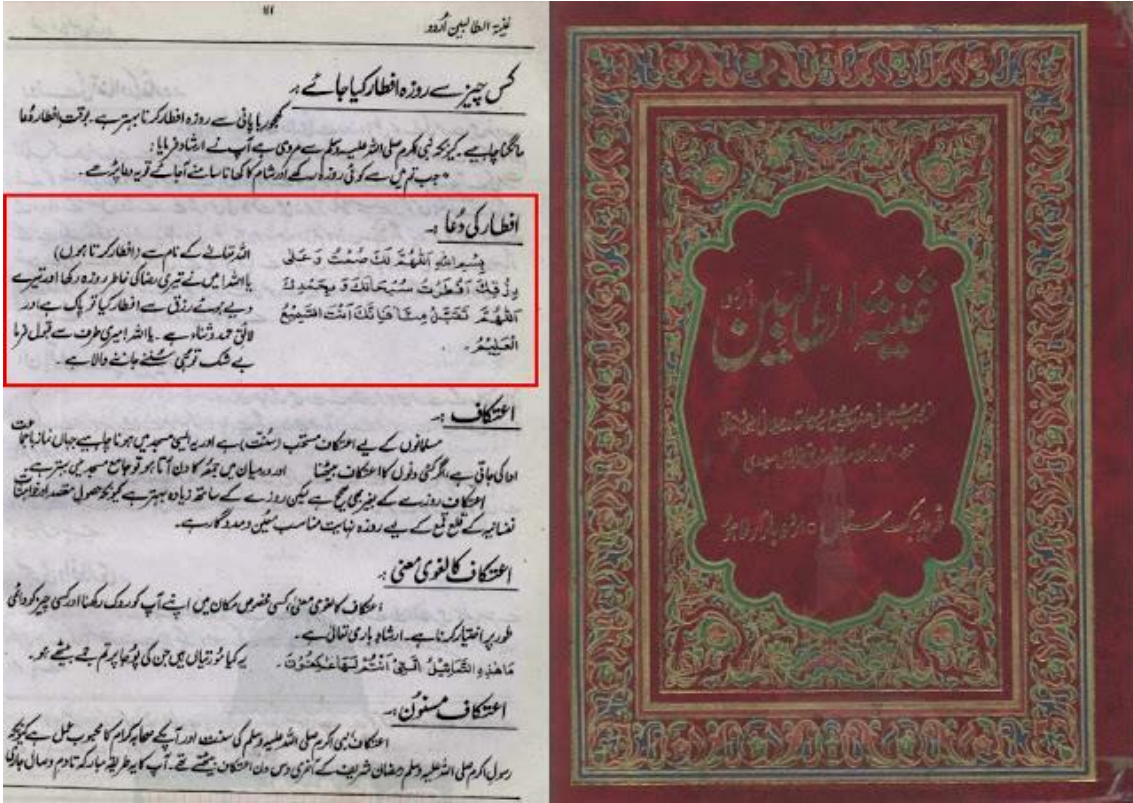 غنیۃ الطالبین اُردو
کس چیز سے روزہ افطار کیا جائے :۔
کھجور یا پانی سے روزہ افطار کرنا بہتر ہے۔ بوقتِ افطار دُعا
مانگنا چاہیے۔ کیونکہ نبی اکرم صلی اللہ علیہ وسلم سے مروی ہے آپ نے ارشاد فرمایا :
"جب تم میں سے کوئی روزہ رکھے اور شام کا کھانا سامنے آجائے تو یہ دعا پڑھے۔
افطار کی دُعا :۔
بِسْمِ اللهِ اَللّٰهُمَّ لَكَ صُمْتُ وَ عَلٰى
رِزْقِكَ اَفْطَرْتُ سُبْحَانَكَ وَ بِحَمْدِكَ
اَللّٰهُمَّ تَقَبَّلْ مِنَّا فَاِنَّكَ اَنْتَ السَّمِيْعُ
الْعَلِيْمُ ۔
اللہ تعالےٰ کے نام سے (افطار کرتا ہوں)
یا اللہ! میں نے تیری رضا کی خاطر روزہ رکھا اور تیرے
دیے ہوئے رزق سے افطار کیا تو پاک ہے اور
لائق حمد و ثناء ہے۔ یا اللہ! میری طرف سے قبول فرما
بے شک تو ہی سُننے جاننے والا ہے۔
اعتکاف :۔
مسلمانوں کے لیے اعتکاف مستحب (سُنّت) ہے اور یہ ایسی مسجد میں ہونا چاہیے جہاں نماز باجماعت
ادا کی جاتی ہے، اگر کئی دنوں کا اعتکاف بیٹھنا اور درمیان میں جمعہ کا دن آتا ہو تو جامع مسجد میں بہتر ہے۔
اعتکاف روزے کے بغیر بھی صحیح ہے لیکن روزے کے ساتھ زیادہ بہتر ہے کیونکہ حصولِ مقصد اور خواہشات
نفسانیہ کے قلع قمع کے لیے روزہ نہایت مناسب مُعین و مددگار ہے۔
اعتکاف کا لغوی معنی :۔
اعتکاف کا لغوی معنیٰ، کسی مخصوص مکان میں اپنے آپ کو روک رکھنا اور کسی چیز کو دائمی
طور پر اختیار کرنا ہے۔ ارشادِ باری تعالیٰ ہے۔
مَا هٰذِهِ التَّمَاثِيْلُ الَّتِيْ اَنْتُمْ لَهَا عٰكِفُوْنَ۔ یہ کیا مُورتیاں ہیں جن کی پُوجا پر تم جمے بیٹھے ہو۔
اعتکاف مسنُون :۔
اعتکاف نبی اکرم صلی اللہ علیہ وسلم کی سنت اور آپکے صحابہ کرام کا محبوب عمل ہے کیونکہ
رسولِ اکرم صلی اللہ علیہ وسلم رمضان شریف کے آخری دس دن اعتکاف بیٹھتے تھے۔ آپ کا یہ طریقہ مبارکہ تا دمِ وصال جاری
غنیۃ الطالبین
اردو